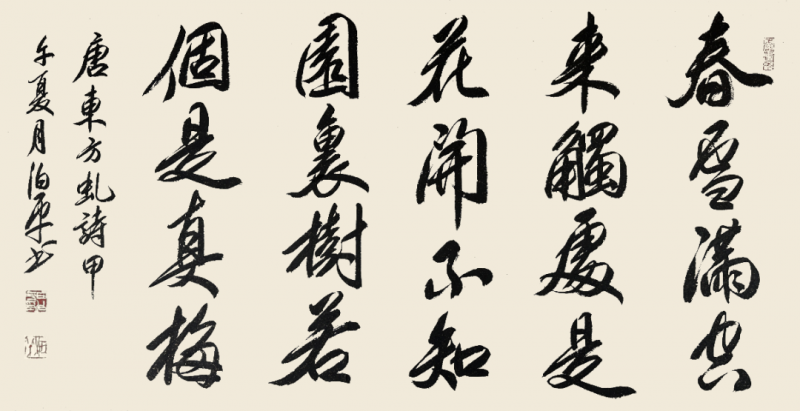 春雪滿空
来觸處是
花開不知
園裏樹若
個是真梅
唐東方虬詩甲
午夏月泊平书